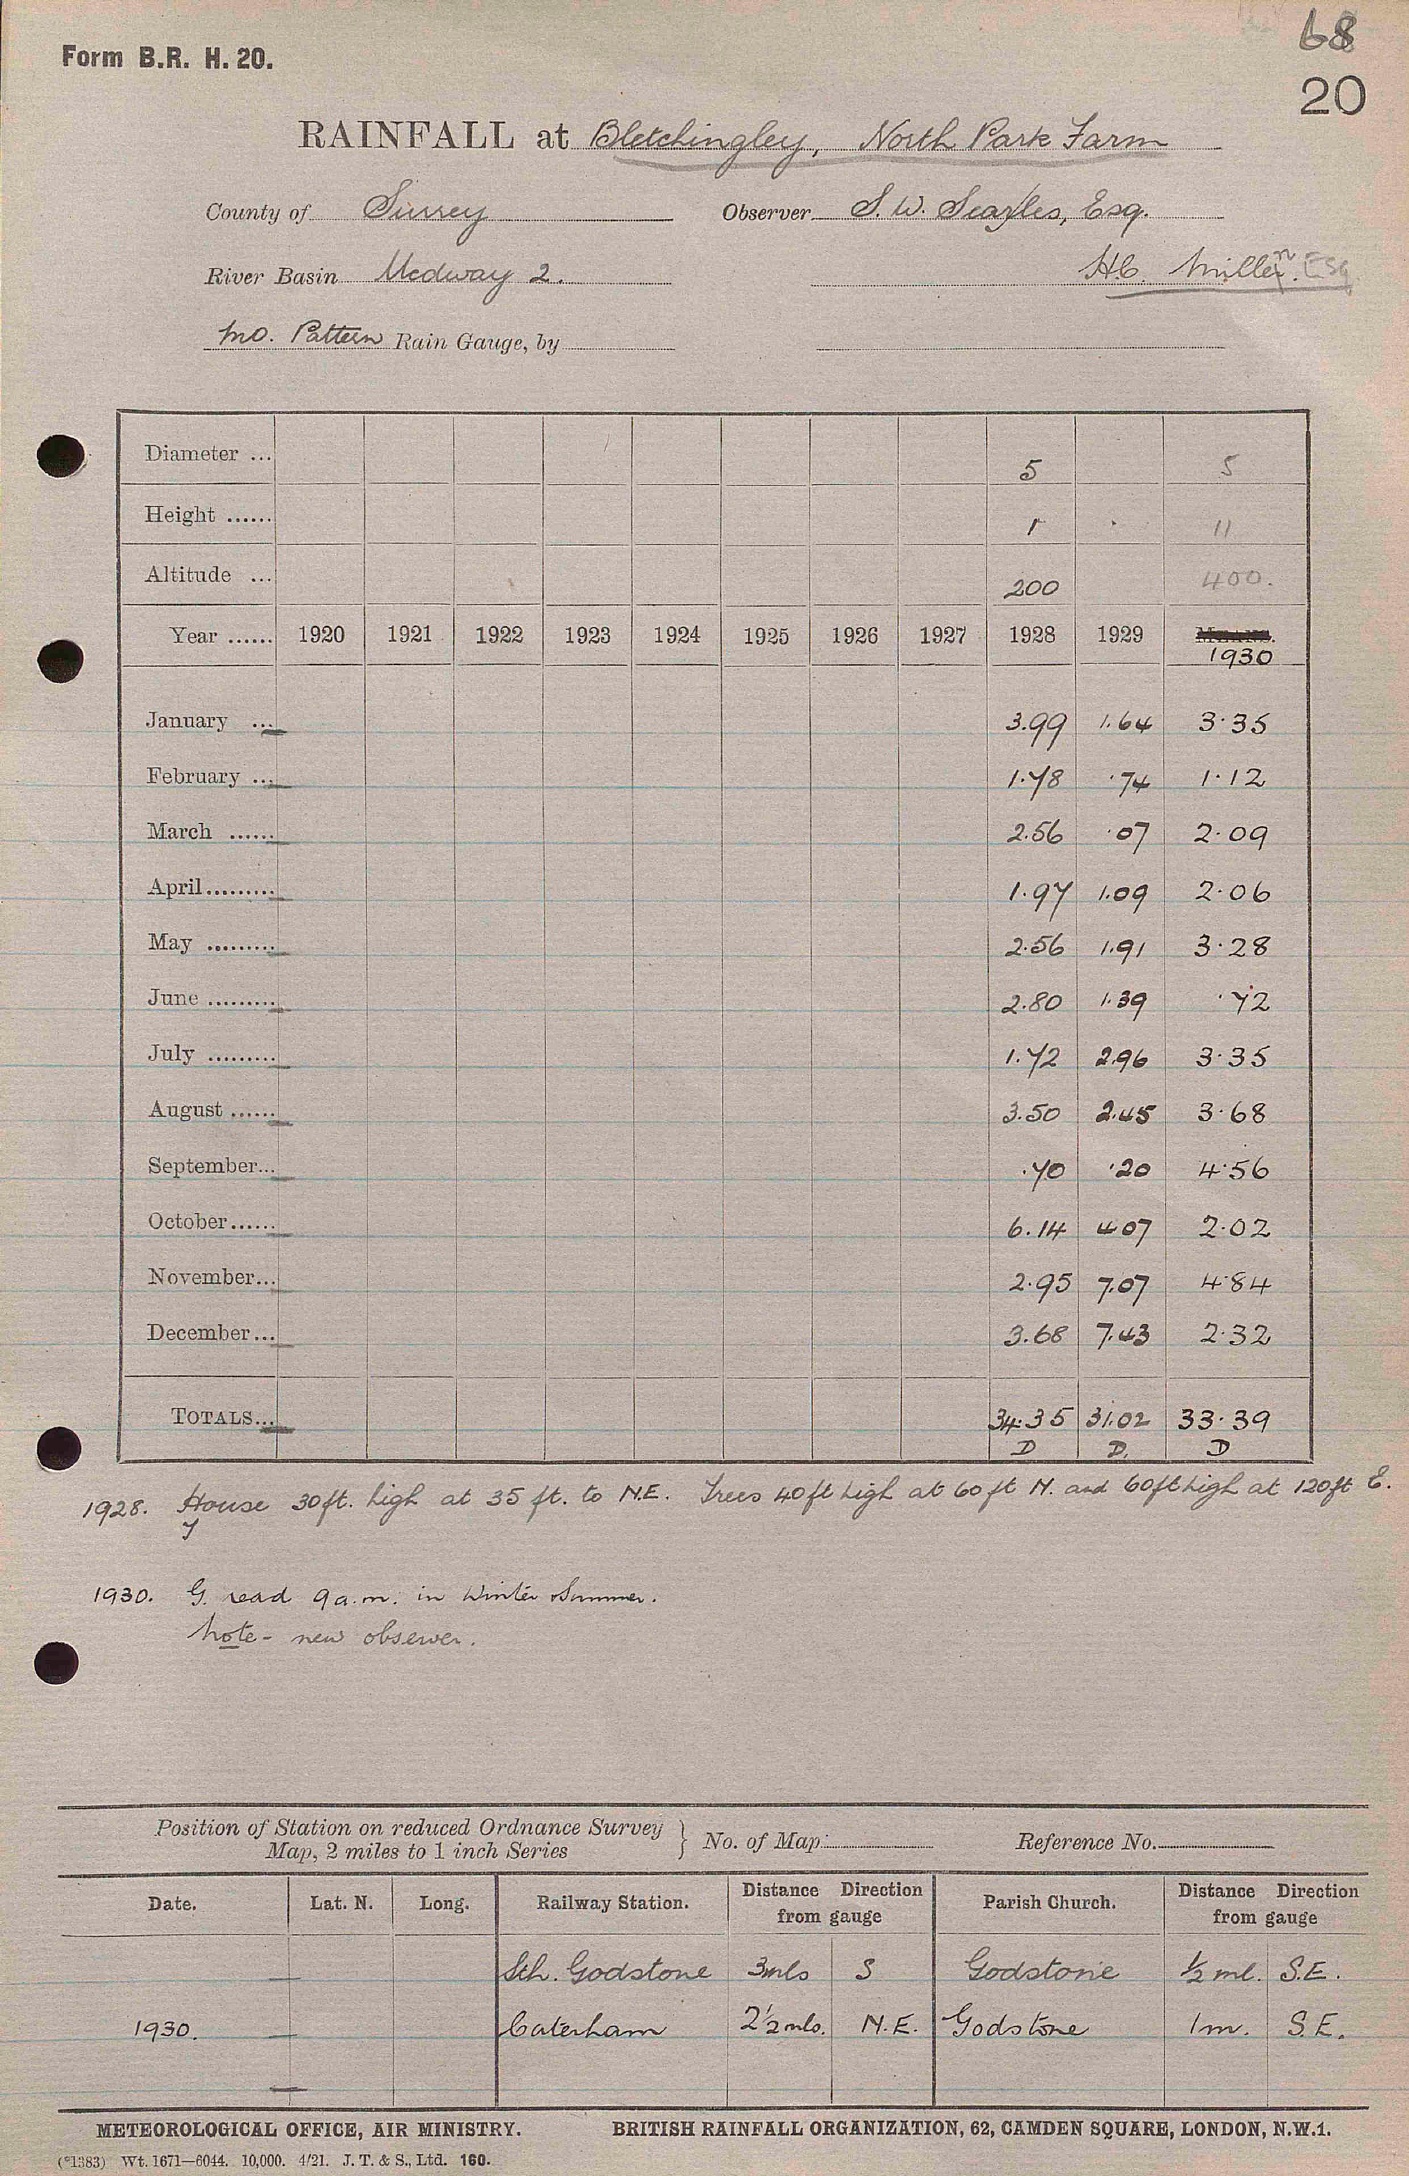 68
Form B.R. H. 20.
20
RAINFALL at Bletchingley, North Park Farm
County of Surrey Observer S. W. Searles, Esq.
River Basin Medway 2. H.C. Millen. Esq
M.O. Pattern Rain Gauge, by
Diameter ... 5 5
Height ...... 1 11
Altitude ... 200 400.
Year ...... 1920 1921 1922 1923 1924 1925 1926 1927 1928 1929 MEANS.
1930
January ... 3.99 1.64 3.35
February ... 1.78 .74 1.12
March ...... 2.56 .07 2.09
April......... 1.97 1.09 2.06
May ......... 2.56 1.91 3.28
June ......... 2.80 1.39 .72
July ......... 1.72 2.96 3.35
August ...... 3.50 2.45 3.68
September... .70 .20 4.56
October...... 6.14 4.07 2.02
November... 2.95 7.07 4.84
December... 3.68 7.43 2.32
TOTALS... 34.35 31.02 33.39
D D. D
1928. House 30ft. high at 35 ft. to N.E. Trees 40ft high at 60ft N. and 60ft high at 120ft E.
1930. G. read 9 a.m. in Winter & Summer.
Note - new observer.
Position of Station on reduced Ordnance Survey
Map, 2 miles to 1 inch Series } No. of Map: Reference No.
Date. Lat. N. Long. Railway Station. Distance Direction from gauge Parish Church. Distance Direction from gauge
Sth. Godstone 3mls S Godstone ½ ml. S.E.
1930. Caterham 2½mls. N.E. Godstone 1m. S.E.
METEOROLOGICAL OFFICE, AIR MINISTRY. BRITISH RAINFALL ORGANIZATION, 62, CAMDEN SQUARE, LONDON, N.W.1.
(*1383) Wt. 1671—6044. 10,000. 4/21. J. T. & S., Ltd. 160.